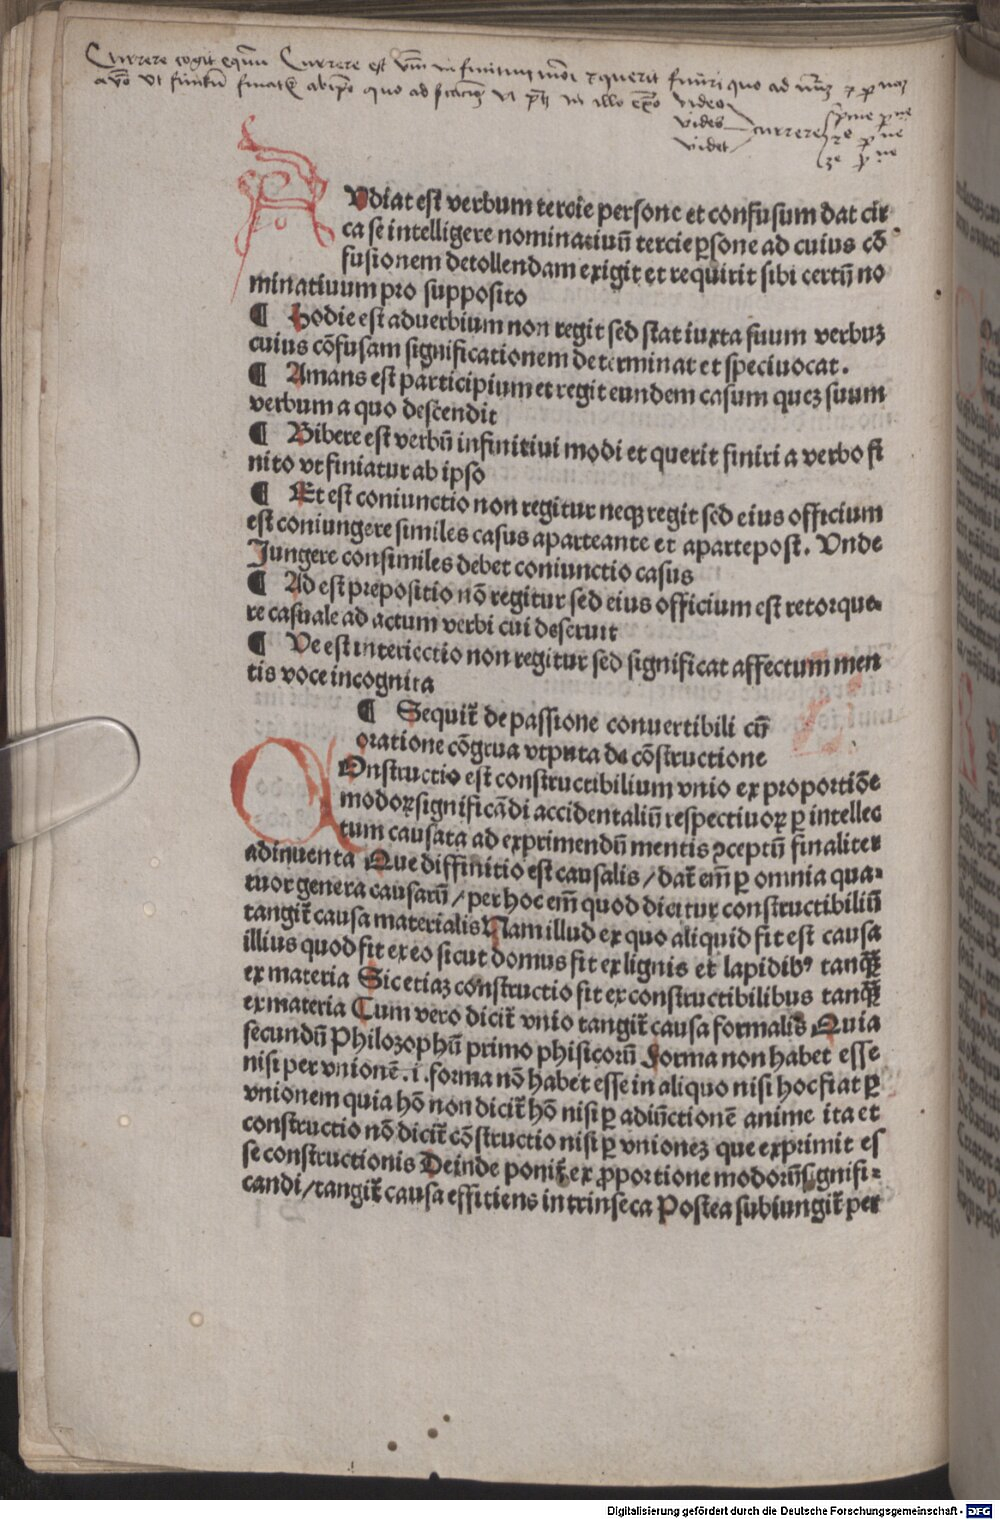 Currere cogit equum Currere est infinitivi modi et querit finiri quo ad
video
vides currere
videt
AUdiat est verbum tercie persone et confusum dat cir
ca se intelligere nominatiuū tercie ꝑsone ad cuius cō
fusionem detollendam exigit et requirit sibi certū no
minatiuum pro supposito
¶ Hodie est aduerbium non regit sed stat iuxta suum verbuꝫ
cuius cōfusam significationem determinat et speciuocat.
¶ Amans est participium et regit eundem casum queꝫ suum
verbum a quo descendit
¶ Bibere est verbū infinitiui modi et querit finiri a verbo fi
nito vt finiatur ab ipso
¶ Et est coniunctio non regitur neqꝫ regit sed eius officium
est coniungere similes casus aparteante et apartepost. Vnde
Jungere consimiles debet coniunctio casus
¶ Ad est prepositio nō regitur sed eius officium est retorque⸗
re casuale ad actum verbi cui deseruit
¶ Ve est interiectio non regitur sed significat affectum men
tis voce incognita
¶ Sequit̄ de passione conuertibili cū
oratione cōgrua vtputa de cōstructione
COnstructio est constructibilium vnio ex proportiōe
modoꝝ significādi accidentaliū respectiuoꝝ ꝑ intellec
tum causata ad exprimendū mentis ꝯceptū finaliter
adinuenta Que diffinitio est causalis / dat̄ em̄ ꝑ omnia qua⸗
tuor genera causarū / per hoc em̄ quod dicitur constructibiliū
tangit̄ causa materialis Nam illud ex quo aliquid fit est causa
illius quod fit ex eo sicut domus fit ex lignis et lapidibꝰ tanq̄ꝫ
ex materia Sic etiaꝫ constructio fit ex constructibilibus tanq̄ꝫ
ex materia Cum vero dicit̄ vnio tangit̄ causa formalis Quia
secundū Philozophū primo phisicorū Forma non habet esse
nisi per vnionē .i. forma nō habet esse in aliquo nisi hoc fiat ꝑ
vnionem quia hō non dicit̄ hō nisi ꝑ adiūctionē anime ita et
constructio nō dicit̄ cōstructio nisi ꝑ vnioneꝫ que exprimit es
se constructionis Deinde ponit̄ ex ꝓportione modorū significa⸗
candi / tangit̄ causa efficiens intrinseca Postea subiungit̄ per
Digitalisierung gefördert durch die Deutsche Forschungsgemeinschaft - DFG